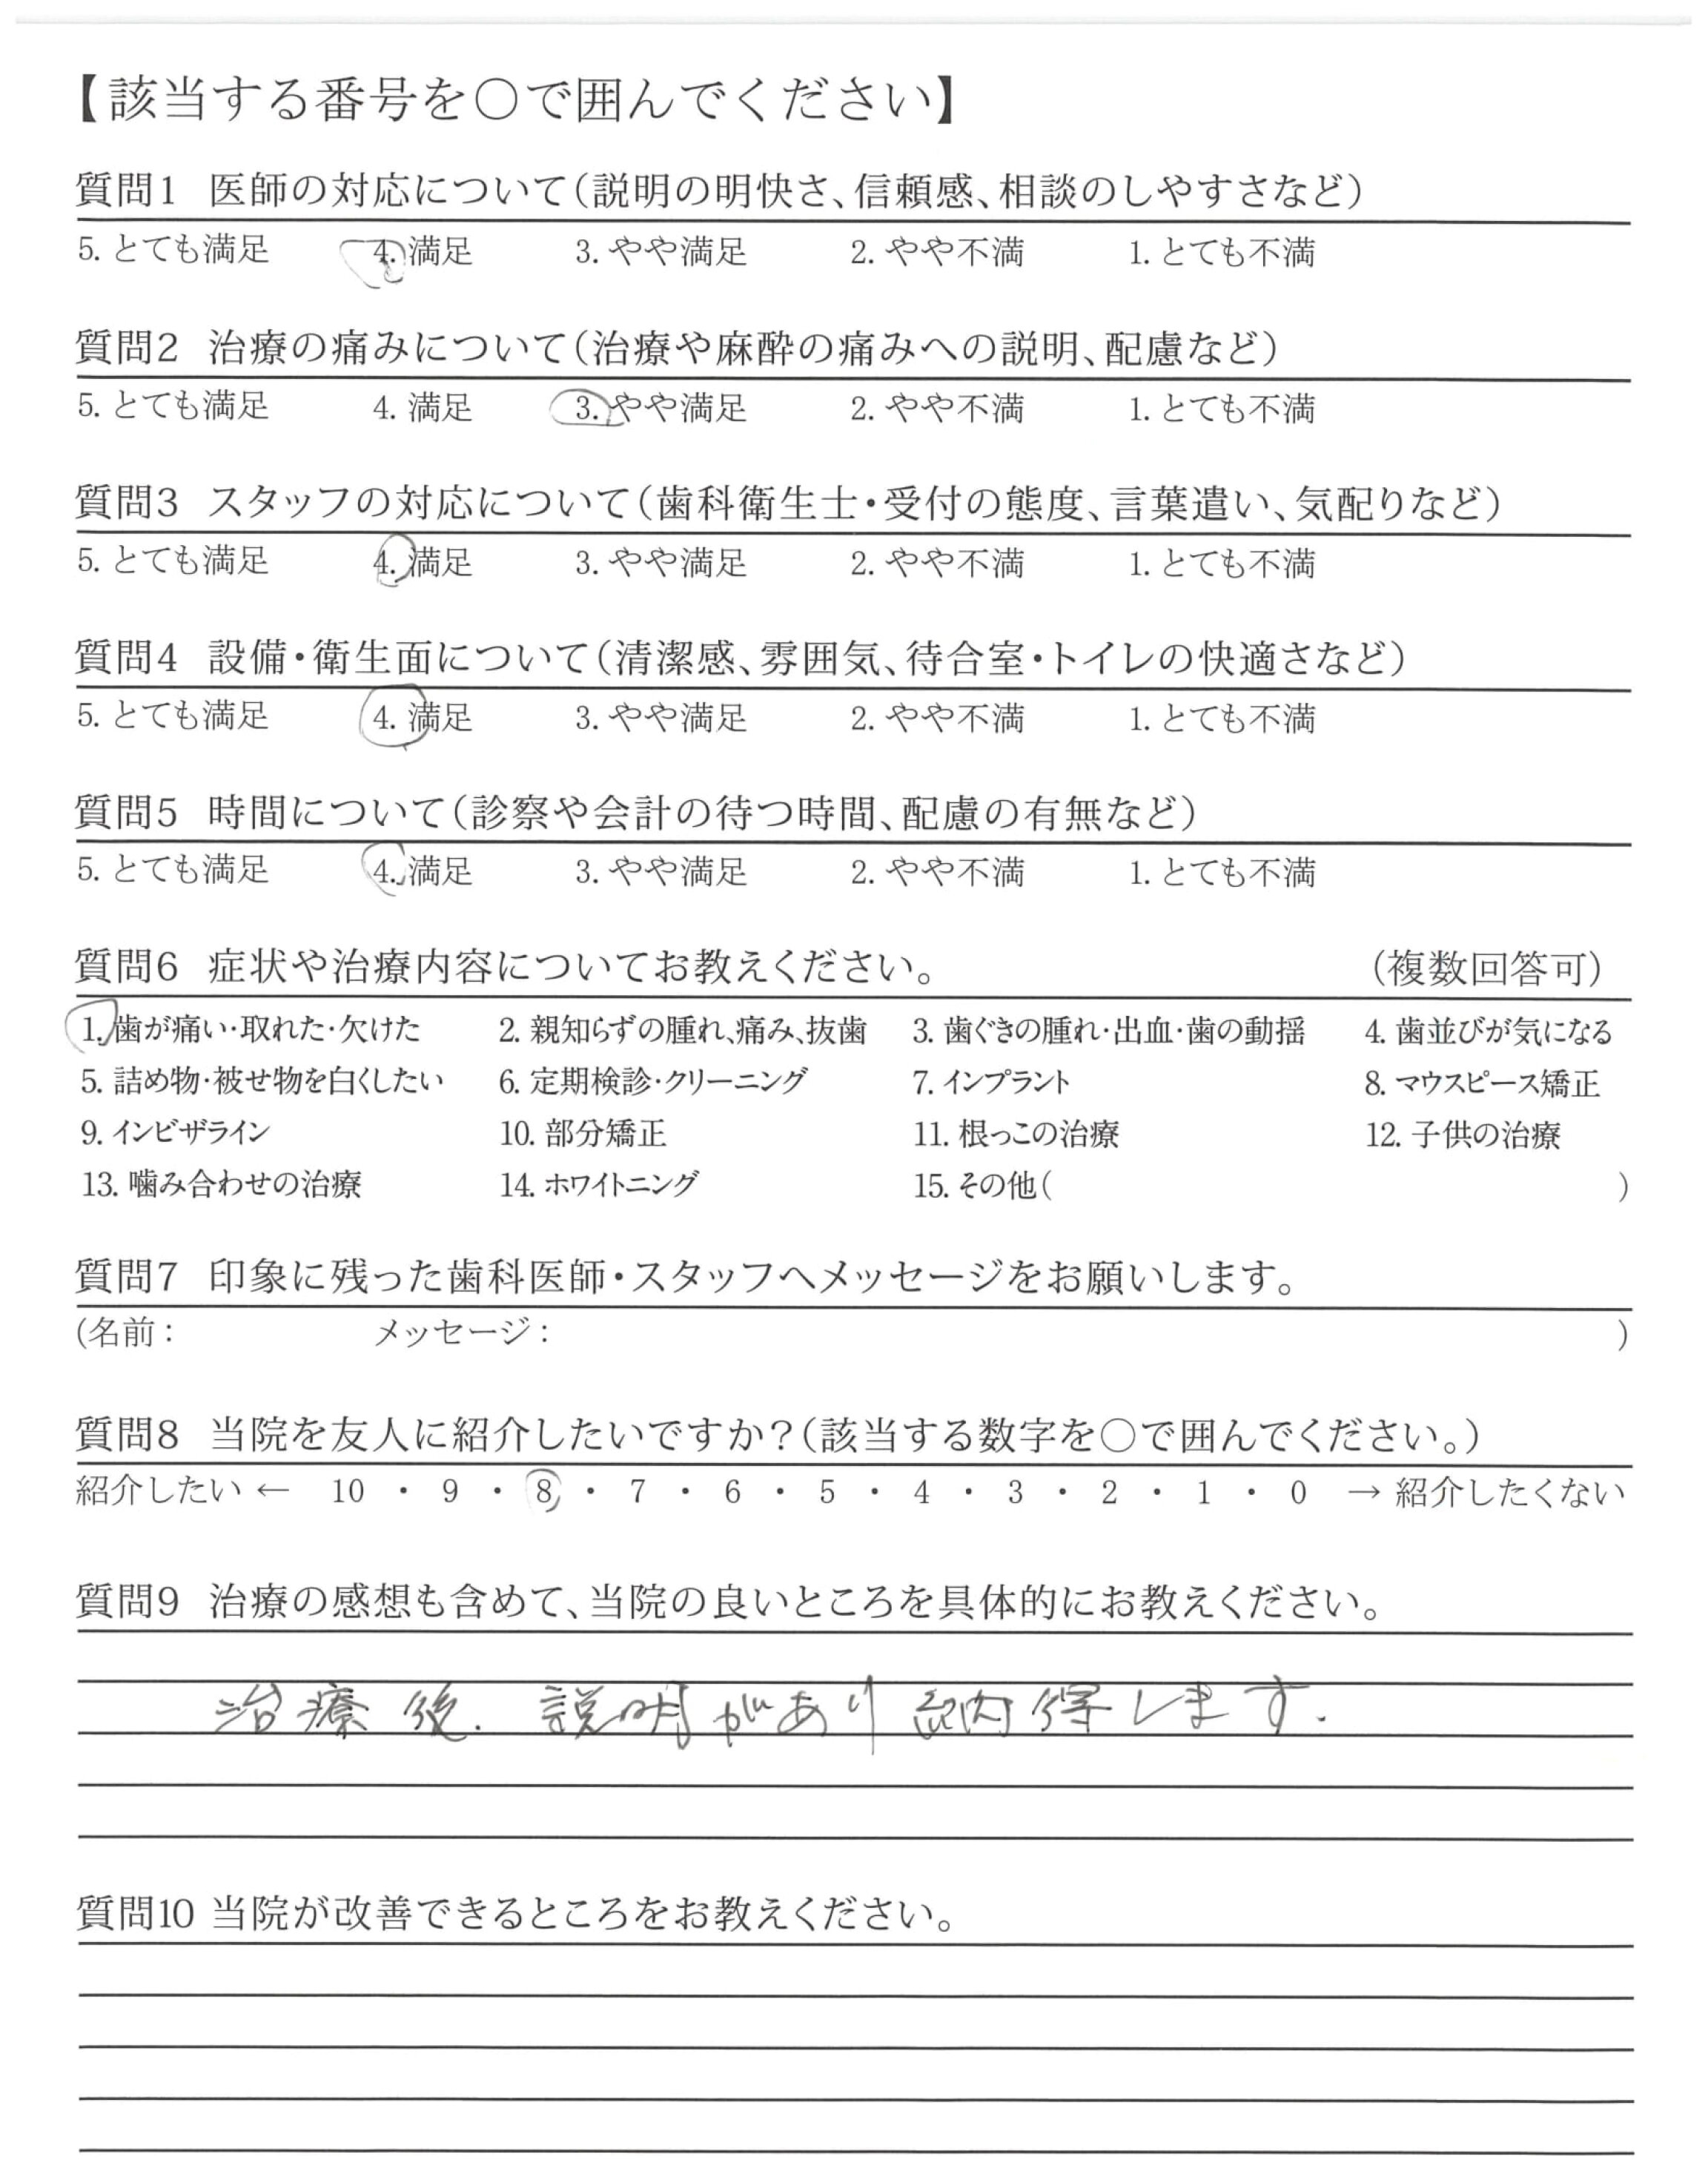 【該当する番号を○で囲んでください】
質問1 医師の対応について（説明の明快さ、信頼感、相談のしやすさなど）
5. とても満足 4. 満足 3. やや満足 2. やや不満 1. とても不満
質問2 治療の痛みについて（治療や麻酔の痛みへの説明、配慮など）
5. とても満足 4. 満足 3. やや満足 2. やや不満 1. とても不満
質問3 スタッフの対応について（歯科衛生士・受付の態度、言葉遣い、気配りなど）
5. とても満足 4. 満足 3. やや満足 2. やや不満 1. とても不満
質問4 設備・衛生面について（清潔感、雰囲気、待合室・トイレの快適さなど）
5. とても満足 4. 満足 3. やや満足 2. やや不満 1. とても不満
質問5 時間について（診察や会計の待つ時間、配慮の有無など）
5. とても満足 4. 満足 3. やや満足 2. やや不満 1. とても不満
質問6 症状や治療内容についてお教えください。 （複数回答可）
1. 歯が痛い・取れた・欠けた 2. 親知らずの腫れ、痛み、抜歯 3. 歯ぐきの腫れ・出血・歯の動揺 4. 歯並びが気になる
5. 詰め物・被せ物を白くしたい 6. 定期検診・クリーニング 7. インプラント 8. マウスピース矯正
9. インビザライン 10. 部分矯正 11. 根っこの治療 12. 子供の治療
13. 噛み合わせの治療 14. ホワイトニング 15. その他（ ）
質問7 印象に残った歯科医師・スタッフへメッセージをお願いします。
（名前： メッセージ： ）
質問8 当院を友人に紹介したいですか？（該当する数字を○で囲んでください。）
紹介したい ← 10 ・ 9 ・ 8 ・ 7 ・ 6 ・ 5 ・ 4 ・ 3 ・ 2 ・ 1 ・ 0 → 紹介したくない
質問9 治療の感想も含めて、当院の良いところを具体的にお教えください。
治療後、説明があり納得します．
質問10 当院が改善できるところをお教えください。